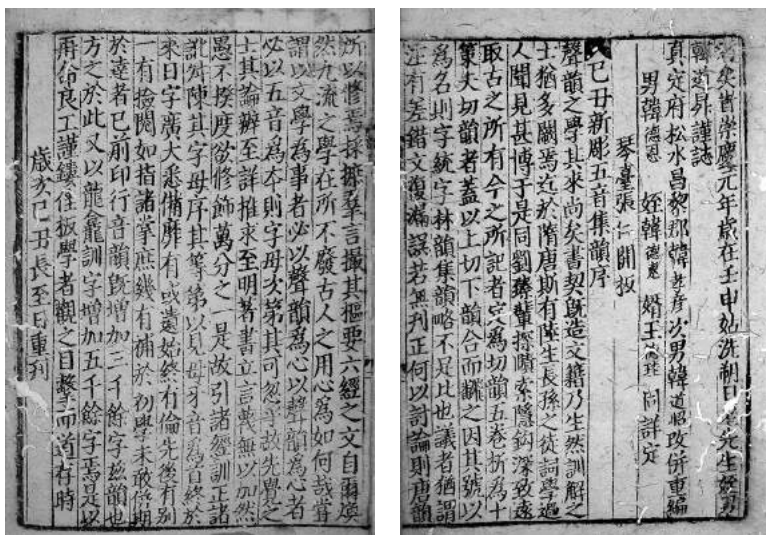 矣皆崇慶元年歲在壬申姑洗朔日老先生姪男
韓道昇謹誌
真定府松水昌黎郡韓孝彥次男韓道昭改併重編
男韓德恩 姪韓德惠 婿王德珪 同詳定
琴臺張仁開板
己丑新彫五音集韻序
聲韻之學其來尚矣書契旣造文籍乃生然訓解之
士猶多闕焉迄於隋唐斯有陸生長孫之徒詞學過
人聞見甚博于是同劉臻輩探賾索隱鈎深致遠
取古之所有今之所記者定為切韻五卷析為十
策夫切韻者盖以上切下韻合而翻之因其號以
為名則字統字林韻集韻略不足比也議者猶謂
注有差錯文復漏誤若無刊正何以討論則唐韻
所以修焉採摭羣言撮其樞要六經之文自爾煥
然九流之學在所不廢古人之用心為如何哉嘗
謂以文學為事者必以聲韻為心以聲韻為心者
必以五音為本則字母次第其可忽乎故先覺之
士其論辨至詳推求至明著書立言蔑無以加然
愚不揆度欲修飾萬分之一是故引諸經訓正諸
訛舛陳其字母序其等第以見母牙音為首終於
來日字廣大悉備靡有或遺始終有倫先後有別
一有檢閱如指諸掌庶幾有補於初學未敢倍期
於達者已前印行音韻旣增加三千餘字茲韻也
方之於此又以龍龕訓字增加五千餘字焉是以
再命良工謹鏤佳板學者觀之目擊而道存時
歲亥己丑長至日重刊